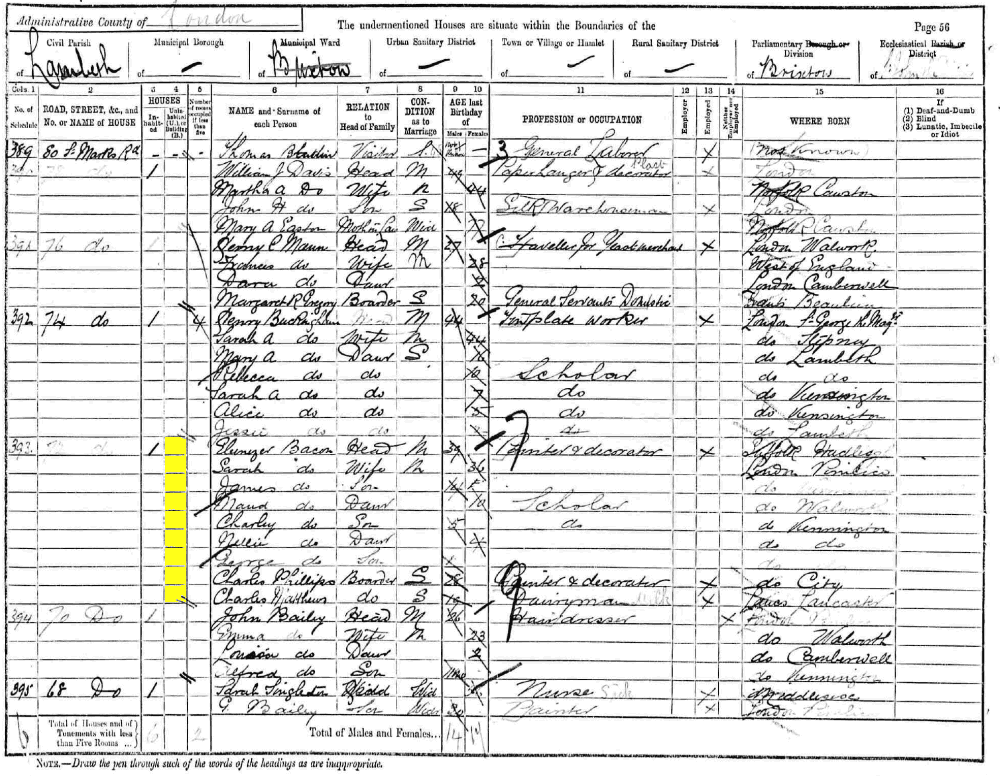 Administrative County of London The undermentioned Houses are situate within the Boundaries of the Page 56
Civil Parish Municipal Borough Municipal Ward Urban Sanitary District Town or Village or Hamlet Rural Sanitary District Parliamentary Borough or Division Ecclesiastical Parish or District
of Lambeth of — of Brixton of — of — of of Brixton of
Cols. 1 2 3 4 5 6 7 8 9 10 11 12 13 14 15 16
No. of Schedule ROAD, STREET, &c., and No. or NAME of HOUSE HOUSES Inhabited Uninhabited (U.), or Building (B.) Number of rooms occupied if less than five NAME and Surname of each Person RELATION to Head of Family CONDITION as to Marriage AGE last Birthday of Males Females PROFESSION or OCCUPATION Employer Employed Neither Employer nor Employed WHERE BORN If (1) Deaf-and-Dumb (2) Blind (3) Lunatic, Imbecile or Idiot
389 80 St Marks Rd - - - Thomas Visitor S General Laborer X (Not Known)
1 William J Davis Head M 49 Paperhanger & decorator X London
Martha A Do Wife M 44 Norfolk Cawston
John H do Son S 18 Silk Warehouseman X London
Mary A Easton Moth in Law Wid Norfolk Cawston
391 76 do 1 Henry C Mann Head M 27 Traveller for merchant X London Walworth
Frances do Wife M 28 West of England
do Daur London Camberwell
Margaret R Gregory Boarder S 20 General Servant Domestic Hants Beaulieu
392 74 do 1 4 Henry Head M 44 Tinplate Worker X London St George
Sarah A do Wife M 44 do Stepney
Mary A do Daur S 16 do Lambeth
Rebecca do do 10 Scholar do do
Sarah A do do 7 do do Kensington
Alice do do 5 do do Kensington
Jessie do do do do Lambeth
393 do 1 Ebenezer Bacon Head M 39 Painter & decorator X Suffolk Hadleigh
Sarah do Wife M 36 London Pimlico
James do Son do
Maud do Daur 10 Scholar do Walworth
Charley do Son 5 do do Kennington
Nellie do Daur 4 do do
George do Son do
Charles Phillips Boarder S 28 Painter & decorator X do City
Charles Matthews do S Dairyman X Lancs Lancaster
394 70 Do 1 John Bailey Head M 26 Hairdresser X London
Emma do Wife M 23 do Walworth
Louisa do Daur 2 do Camberwell
Alfred do Son do Kennington
395 68 Do 1 Sarah Singleton Head Wid Nurse Sick X Middlesex
G. Bailey Son Widr 30 Painter X London
6 Total of Houses and of Tenements with less than Five Rooms ... 6 2 Total of Males and Females... 14
NOTE.—Draw the pen through such of the words of the headings as are inappropriate.